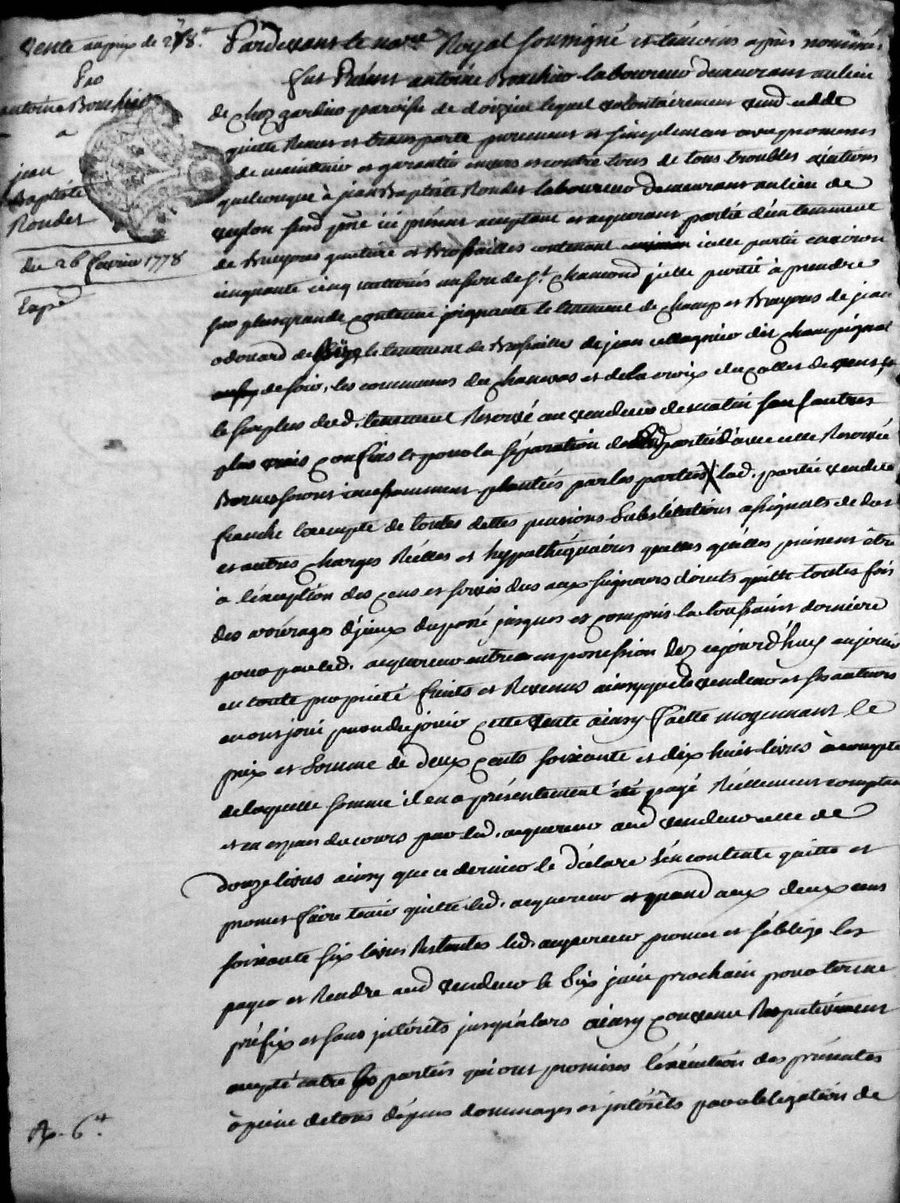 Vente au prix de 278.tt
Par
antoine Bouchet
a
jean
Baptiste
Rondet
du 26 fevrier 1778
Expé
Pardevant le nore Royal soussigné et temoins après nommés
fut Présent antoine Bouchet laboureur demeurant au lieu
de chez gardier paroisse de doizieu lequel volontairement vend cedde
quitte Remet et transporte purement et simplement avec promesse
de maintenir et garantir envers et contre tous de tous troubles evictions
quelconque à jean Baptiste Rondet laboureur demeurant au lieu de
présent acceptant et acquerant partie d'un tenement
de Bruyeres et Brossailles contenant icelle partie environ
cinquante cinq mesure de St. chamond icelle partie à prendre
sur plus grande contenue joignante le tenement de champ et Bruyeres de jean
odouard de le tenement de Brossailles de jean dit champignat
de soir, les communes du et de la croix du collet de vent et
le surplus dud. tenement Reservé au vendeur de matin sauf autres
plus vrais confins et pour la séparation de lad partie d'avec celle Reservée
Bornes seront incessamment plantées par les parties lad. partie vendue
franche exempte de toutes dettes pensions substitutions assignats de dot
et autres charges Réelles et hypothéquaires quelles qu'elles puissent être
à l'éxeption des cens et servis dus aux seigneurs directs quitte toutes fois
des arrérages d'jceux du passé jusques et compris la toussaint derniere
pour par led. acquereur entrer en possession dez aujourd'huy en jouir
en toute propriété fruits et Revenus ainsy que le vendeur et ses auteurs
en ont joui pu ou du jouir cette vente ainsy faitte moyennant le
prix et somme de deux cents soixante et dix huit livres à compte
de laquelle somme il en a présentement été payé Réellement comptant
et en espèces du cours par led. acquereur aud vendeur celle de
douze livres ainsy que ce dernier le déclare s'en contente quitte et
promet faire tenir quitte led. acquereur et quand aux deux cens
soixante six livres Restantes led. acquereur promet et s'oblige les
payer et Rendre aud vendeur le six juin prochain pour terme
préfix et sans intérêts jusqu'alors ainsy convenu Respectivement
accepté entre les parties qui ont promises l'éxécution des présentes
à peine de tous dépens dommages et intérêts par obligation de
R. 6.tt